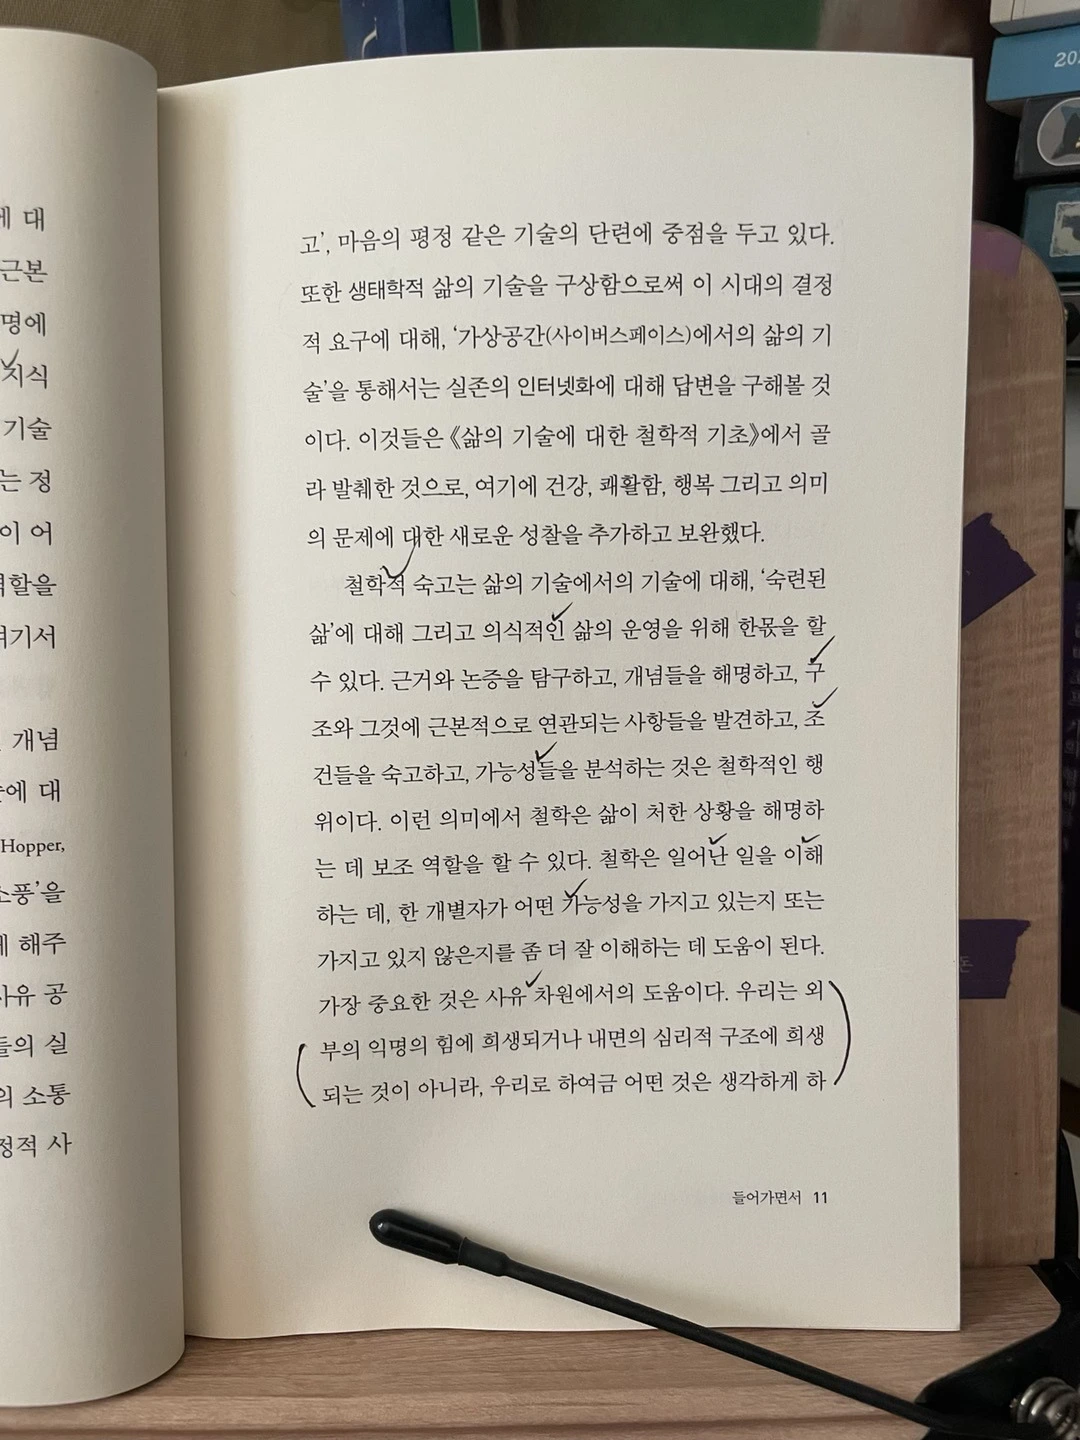 에 대
근본
명에
지식
기술
는 정
이 어
역할을
여기서
개념
에 대
Hopper,
소풍’을
해주
사유 공
들의 실
의 소통
정적 사
고’, 마음의 평정 같은 기술의 단련에 중점을 두고 있다.
또한 생태학적 삶의 기술을 구상함으로써 이 시대의 결정
적 요구에 대해, ‘가상공간(사이버스페이스)에서의 삶의 기
술’을 통해서는 실존의 인터넷화에 대해 답변을 구해볼 것
이다. 이것들은 《삶의 기술에 대한 철학적 기초》에서 골
라 발췌한 것으로, 여기에 건강, 쾌활함, 행복 그리고 의미
의 문제에 대한 새로운 성찰을 추가하고 보완했다.
철학적 숙고는 삶의 기술에서의 기술에 대해, ‘숙련된
삶’에 대해 그리고 의식적인 삶의 운영을 위해 한몫을 할
수 있다. 근거와 논증을 탐구하고, 개념들을 해명하고, 구
조와 그것에 근본적으로 연관되는 사항들을 발견하고, 조
건들을 숙고하고, 가능성들을 분석하는 것은 철학적인 행
위이다. 이런 의미에서 철학은 삶이 처한 상황을 해명하
는 데 보조 역할을 할 수 있다. 철학은 일어난 일을 이해
하는 데, 한 개별자가 어떤 가능성을 가지고 있는지 또는
가지고 있지 않은지를 좀 더 잘 이해하는 데 도움이 된다.
가장 중요한 것은 사유 차원에서의 도움이다. 우리는 외
부의 익명의 힘에 희생되거나 내면의 심리적 구조에 희생
되는 것이 아니라, 우리로 하여금 어떤 것은 생각하게 하
들어가면서 11